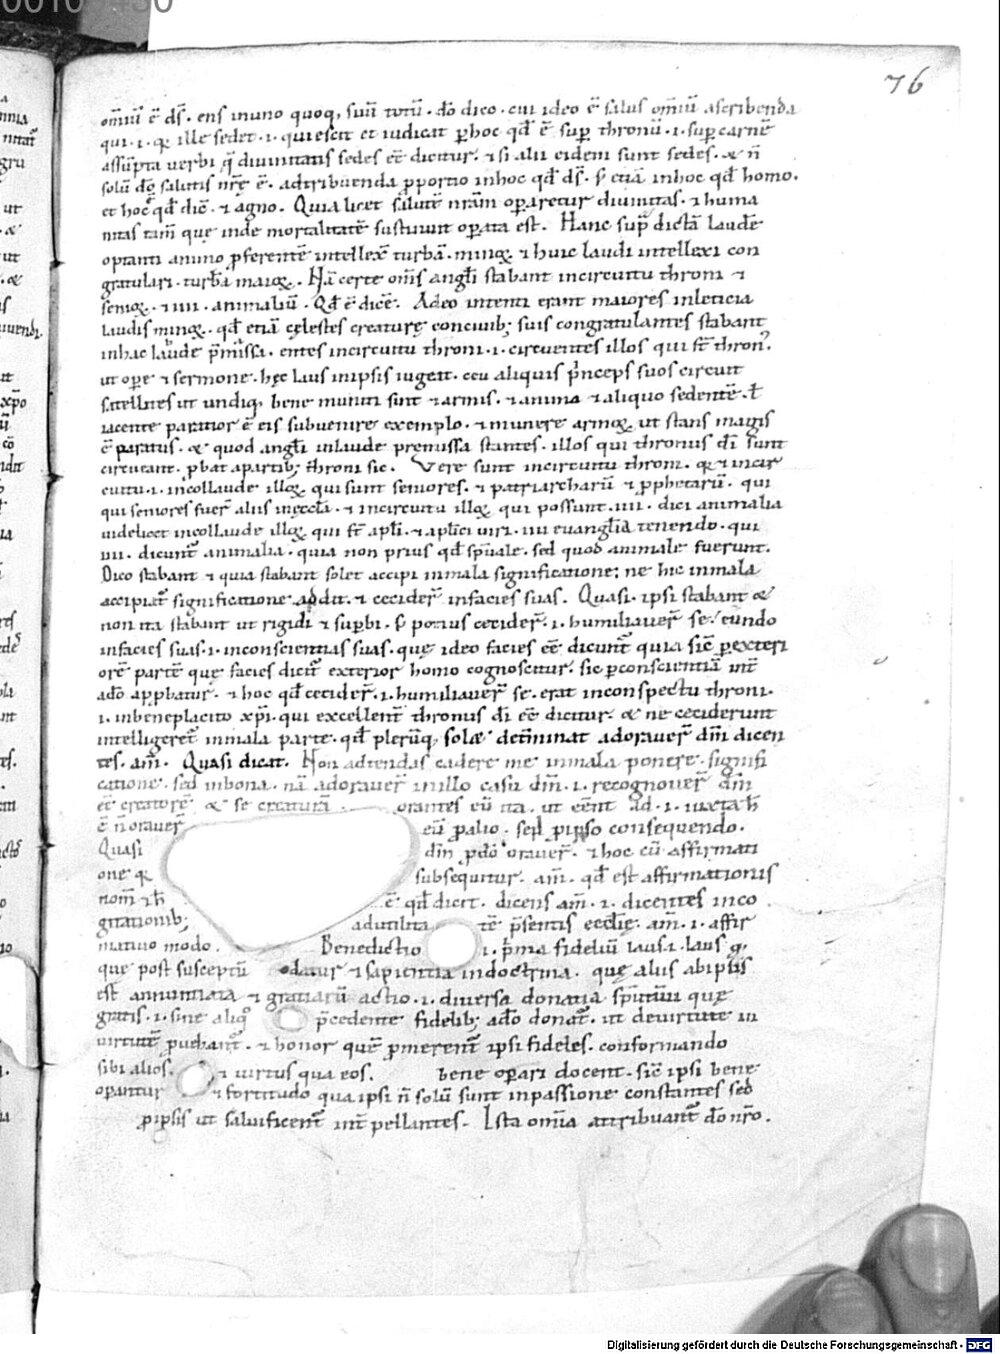 76
om̄iū ē ds̄. ens inuno quoq, suū totū. dō dico. cui ideo ē salus om̄iū ascribenda
qui .i. qꝛ ille sedet .i. quiescit et iudicat ꝑhoc qd̄ ē suꝑ thronū .i. suꝑ carnē
assūpta uerbi q̄ diuinitatis sedes eē dicitur. ⁊ si alii eidem sunt sedes. & n̄
solū dō salutis nrę̄ ē. adtribuenda ꝓportio inhoc qd̄ ds̄. s̄ etiā inhoc qd̄ homo.
et hoc qd̄ dic̄. ⁊ agno. Quia licet salutē nrām oꝑaretur diuinitas. ⁊ huma
nitas tam̄ que inde mortalitatē sustinuit oꝑata est. Hanc sup̄ dictā laudē
optanti animo ꝓferentē intellex̄ turbā. minoꝝ ⁊ huic laudi intellexi con
gratulari. turbā maioꝝ. Nā certe om̄s angl̄i stabant incircuitu throni ⁊
senioꝝ. ⁊ iiii. animaliū. Qd̄ ē dicē. Adeo intenti erant maiores inleticia
laudis minoꝝ. qd̄ etiā cęlestes creaturę conciuib; suis congratulantes stabant
inhac laude p̄missa. entes incircuitu throni .i. circueuntes illos qui st̄ thron⁹.
ut oꝑe ⁊ sermone. hęc laus inipsis uigeat. ceu aliquis p̄nceps suos circuit
satellites ut undiq, bene muniti sint ⁊ armis. ⁊ anima ⁊ aliquo sedentē. ł
iacente paratior ē eis subuenire exemplo. ⁊ munere armoꝝ ut stans magis
ē paratus. & quod angl̄i inlaude premissa stantes. illos qui thronus dī sunt
circueant. ꝓbat apartib; throni sic. Vere sunt incircuitu throni. qꝛ ⁊ incir
cuitu .i. incollaude illoꝝ qui sunt seniores. ⁊ patriarcharū ⁊ ꝓphetarū. qui
qui seniores fuer̄ aliis inęccla. ⁊ incircuitu illoꝝ qui possunt .iiii. dici animalia
uidelicet incollaude illoꝝ qui st̄ apl̄i. ⁊ aplici uiri. iiii euanglia tenendo. qui
iiii. dicunt̄ animalia. quia non prius qd̄ spūale. sed quod animale fuerunt.
Dico stabant ⁊ quia stabant solet accipi inmala significatione; ne hic inmala
accipiat̄ significatione addit. ⁊ cecider̄ infacies suas. Quasi. ipsi stabant &
non ita stabant ut rigidi ⁊ suꝑbi. s̄ potius cecider̄ .i. humiliauer̄ se. eundo
infacies suas .i. inconscientias suas. quę ideo facies eē dicunt̄ quia sic̄ ꝑexteri
orē partē que facies dicit̄ exterior homo cognoscitur. sic ꝑconscientiā int̄
adō approbatur. ⁊ hoc qd̄ cecider̄ .i. humiliauer̄ se. erat inconspectu throni.
.i. inbeneplacito xp̄i. qui excellent̄ thronus dī eē dicitur. & ne ceciderunt
intelligeret̄ inmala parte. qd̄ plerūq, solæ det̄minat adorauer̄ dm̄ dicen
tes. am̄. Quasi dicat. Non adtendas cadere me inmala ponere. signifi
catione. sed inbona. nā adorauer̄ inillo casu dm̄ .i. recognouer̄ dm̄
eē creatorē & se creaturā orantes eū ita. ut eēnt ad .i. iuxta h̄
ē n̄ orauer̄ eū ꝓalio. sed ꝓipso consequendo.
Quasi dm̄ ꝓdō orauer̄. ⁊ hoc cū affirmati
one qꝛ subsequitur. am̄. qd̄ est affirmationis
nom̄ ⁊ h̄ ē qd̄ dicit. dicens am̄ .i. dicentes inco
gitationib; adutilita tē p̄sentis ecclię. am̄ .i. affir
matiuo modo. Benedictio .i. p̄ma fideliū laus .i. laus q̄
que post susceptū datur ⁊ sapientia indoctrina. quę aliis abipsis
est annuntiata ⁊ gratiarū actio .i. diuersa donatia spirituū quę
gratis .i. sine aliq̊ p̄cedente fidelib; adō donat̄. ut deuirtute in
uirtutē ꝓuehant̄. ⁊ honor quē ꝓmerent̄ ipsi fideles. conformando
sibi alios. ⁊ uirtus qua eos. bene oꝑari docent. sic̄ ipsi bene
oꝑantur ⁊ fortitudo qua ipsi n̄ solū sunt inpassione constantes sed
ꝓipsis ut saluificent̄ int̄pellantes. Ista om̄ia attribuant̄ dō nrō.
Digitalisierung gefördert durch die Deutsche Forschungsgemeinschaft - DFG